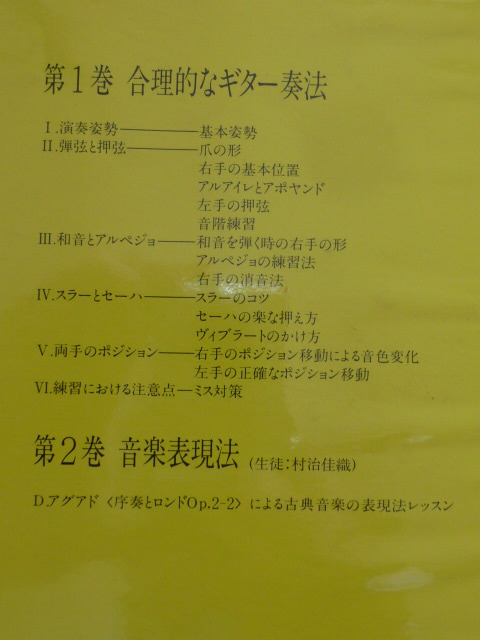 第1巻 合理的なギター奏法
I.演奏姿勢────基本姿勢
II.弾弦と押弦───爪の形
右手の基本位置
アルアイレとアポヤンド
左手の押弦
音階練習
III.和音とアルペジョ──和音を弾く時の右手の形
アルペジョの練習法
右手の消音法
IV.スラーとセーハ───スラーのコツ
セーハの楽な押え方
ヴィブラートのかけ方
V.両手のポジション──右手のポジション移動による音色変化
左手の正確なポジション移動
VI.練習における注意点─ミス対策
第2巻 音楽表現法 (生徒:村治佳織)
D.アグアド〈序奏とロンドOp.2-2〉による古典音楽の表現法レッスン